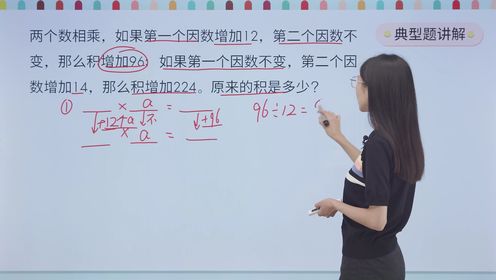 典型题讲解
两个数相乘，如果第一个因数增加12，第二个因数不
变，那么积增加96；如果第一个因数不变，第二个因
数增加14，那么积增加224。原来的积是多少？
① × a = 96÷12=
↓+12 ↓不 ↓+96
× a =